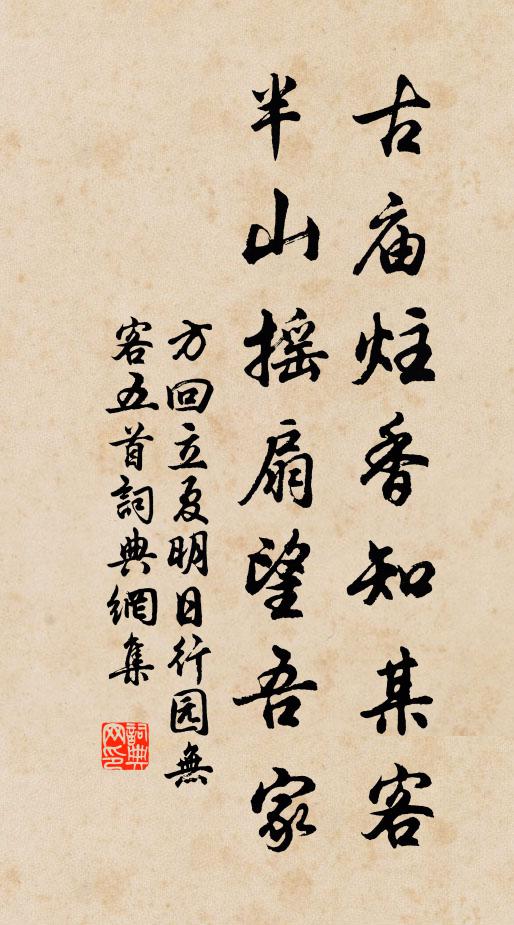 古庙炷香知某客
半山摇扇望吾家
方回立夏明日行园無
客五首詞典網集
詞典网印